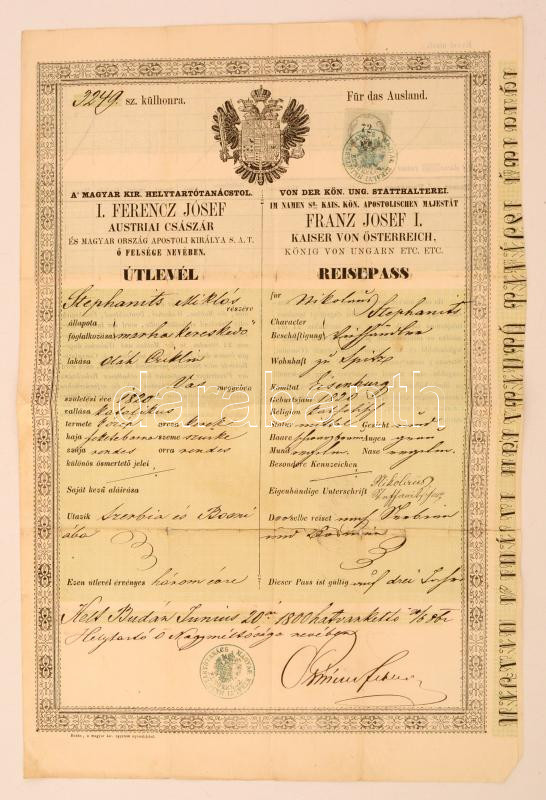 3249. sz. külhonra.
Für das Ausland.
72
A' MAGYAR KIR. HELYTARTÓTANÁCSTOL.
I. FERENCZ JÓSEF
AUSTRIAI CSÁSZÁR
ÉS MAGYAR ORSZÁG APOSTOLI KIRÁLYA S. A. T.
Ő FELSÉGE NEVÉBEN.
ÚTLEVÉL
Stephanits Miklós
részére
állapota
foglalkozása marha kereskedő
lakása oláh Csiklin
Vas megyében
születési éve 1820
vallása katolikus
termete közép orcza kerek
haja fekete barna szeme szürke
szája rendes orra rendes
különös ösmertető jelei
Saját kezű aláirása
Utazik Szerbia és Bosni
ába
Ezen útlevél érvényes három évre
VON DER KÖN. UNG. STATTHALTEREI.
IM NAMEN Sr. KAIS. KÖN. APOSTOLISCHEN MAJESTÄT
FRANZ JOSEF I.
KAISER VON ÖSTERREICH,
KÖNIG VON UNGARN ETC. ETC.
REISEPASS
für Nikolaus
Stephanits
Character
Beschäftigung Viehhändler
Wohnhaft zu Spitz
Komitat Eisenburg
Geburtsjahr 1820
Religion katholisch
Statur mittel Gesicht rund
Haare schwarzbraun Augen grau
Mund regelm. Nase regelm.
Besondere Kennzeichen
Eigenhändige Unterschrift Nikolaus
Derselbe reiset nach Serbien
und Bosnien
Dieser Pass ist gültig auf drei Jahre
Kelt Budán Junius 20án 1800 hatvankettő
Helytartó ő Nagyméltósága nevében
darabanth